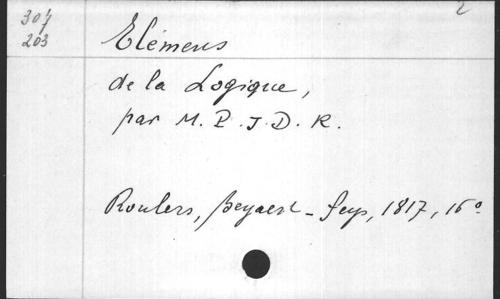 307
203
2
Elémens
de la Logique,
par M. P. J. D. R.
Roulers, Beyaert-Feys, 1817, 16°